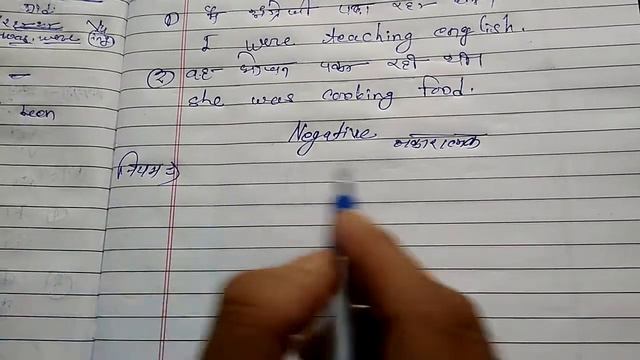 Did
was, were (ing)
been
(1) मैं अंग्रेजी
I were teaching english.
(२) वह भोजन पका रही थी।
she was cooking food.
Negative नकारात्मक
नियम